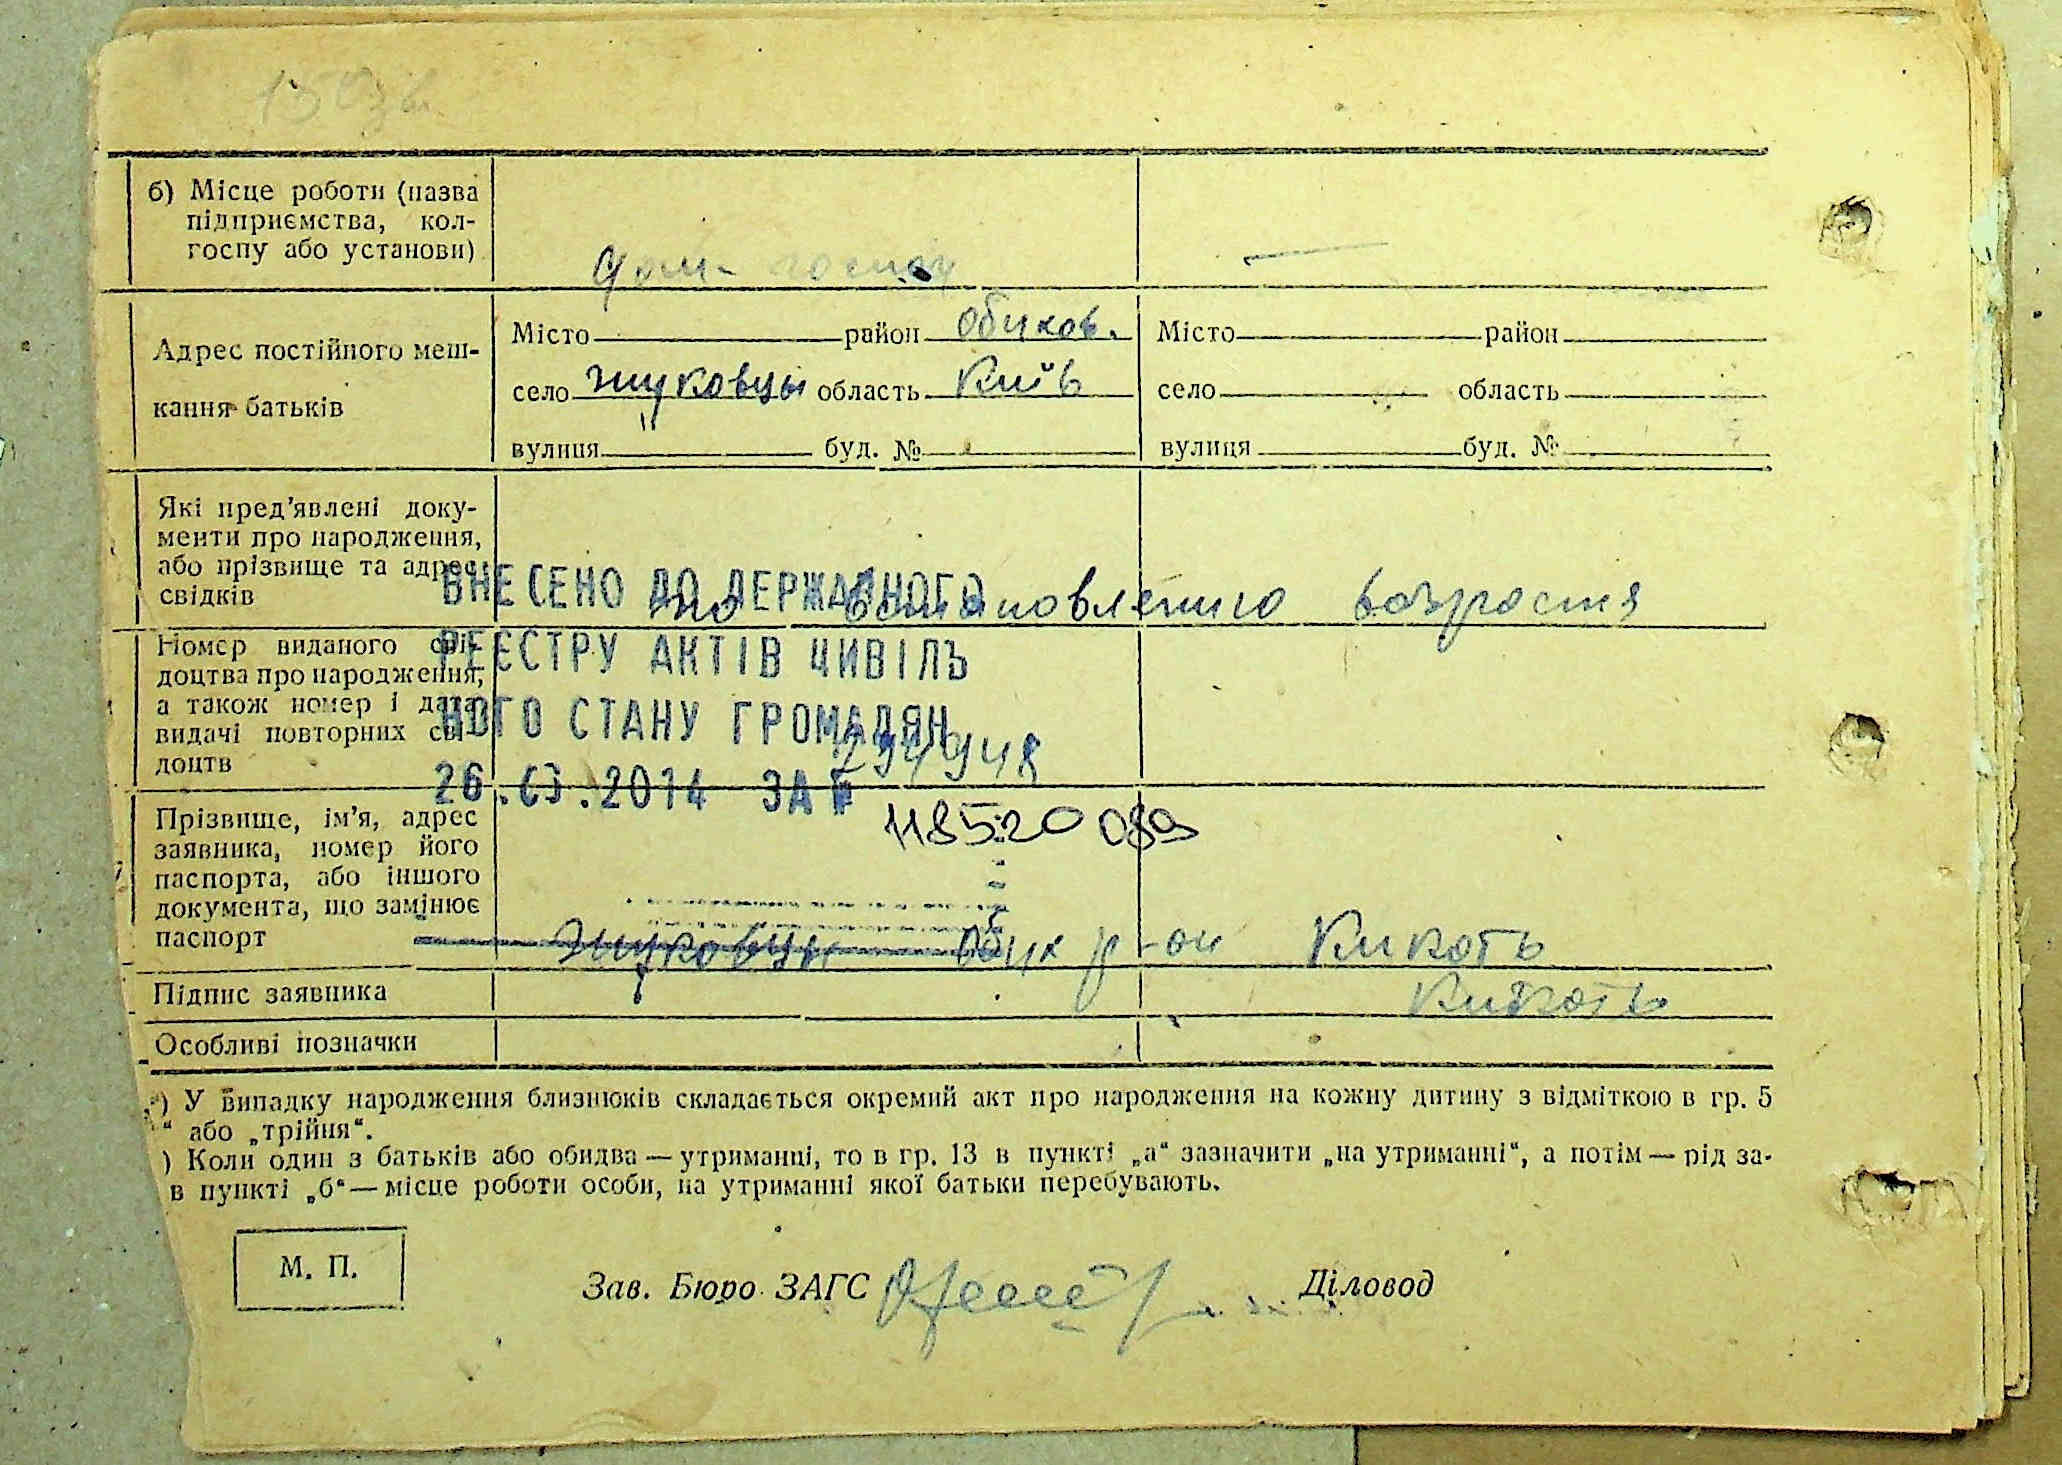 б) Місце роботи (назва
підприємства, кол-
госпу або установи)
дом- господ
Адрес постійного меш-
кання батьків
Місто район Обухов. Місто район
село Жуковцы область Київ село область
вулиця буд. № вулиця буд. №
Які пред'явлені доку-
менти про народження,
або прізвище та адрес
свідків
по востановлению возраста
Номер виданого сві-
доцтва про народження,
а також номер і дата
видачі повторних сві-
доцтв
ВНЕСЕНО ДО ДЕРЖАВНОГО
РЕЄСТРУ АКТІВ ЦИВІЛЬ
НОГО СТАНУ ГРОМАДЯН
26.03.2014 ЗА №
118520089
Прізвище, ім'я, адрес
заявника, номер його
паспорта, або іншого
документа, що замінює
паспорт
Жуковцы Обух р-он Кикоть
Підпис заявника Кикоть
Особливі позначки
) У випадку народження близнюків складається окремий акт про народження на кожну дитину з відміткою в гр. 5
“ або „трійня“.
) Коли один з батьків або обидва — утриманці, то в гр. 13 в пункті „а“ зазначити „на утриманні“, а потім — під за-
в пункті „б“ — місце роботи особи, на утриманні якої батьки перебувають.
М. П.
Зав. Бюро ЗАГС Діловод